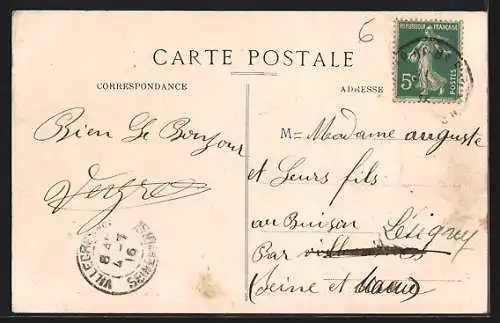 6
CARTE POSTALE
REPUBLIQUE FRANÇAISE
5c
POSTES
CORRESPONDANCE
ADRESSE
Bien Le Bonjour
M= Madame auguste
et Leurs fils
au Buison Lésigny
Par
(Seine et
VILLECRESNES
SEINE-ET-OISE
4-7
16